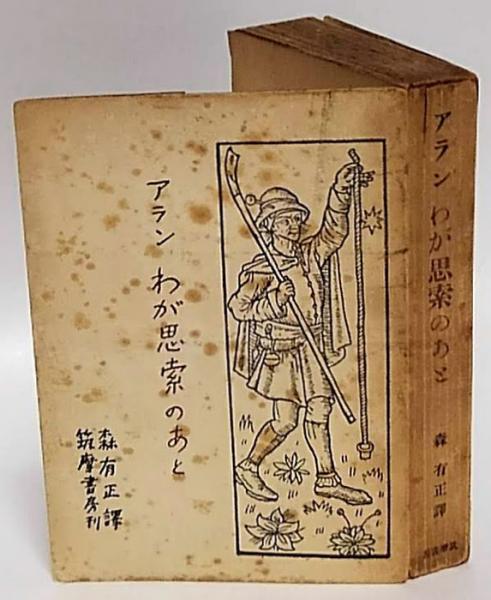 アラン わが思索のあと
森有正譯
筑摩書房刊
アラン わが思索のあと
森有正譯